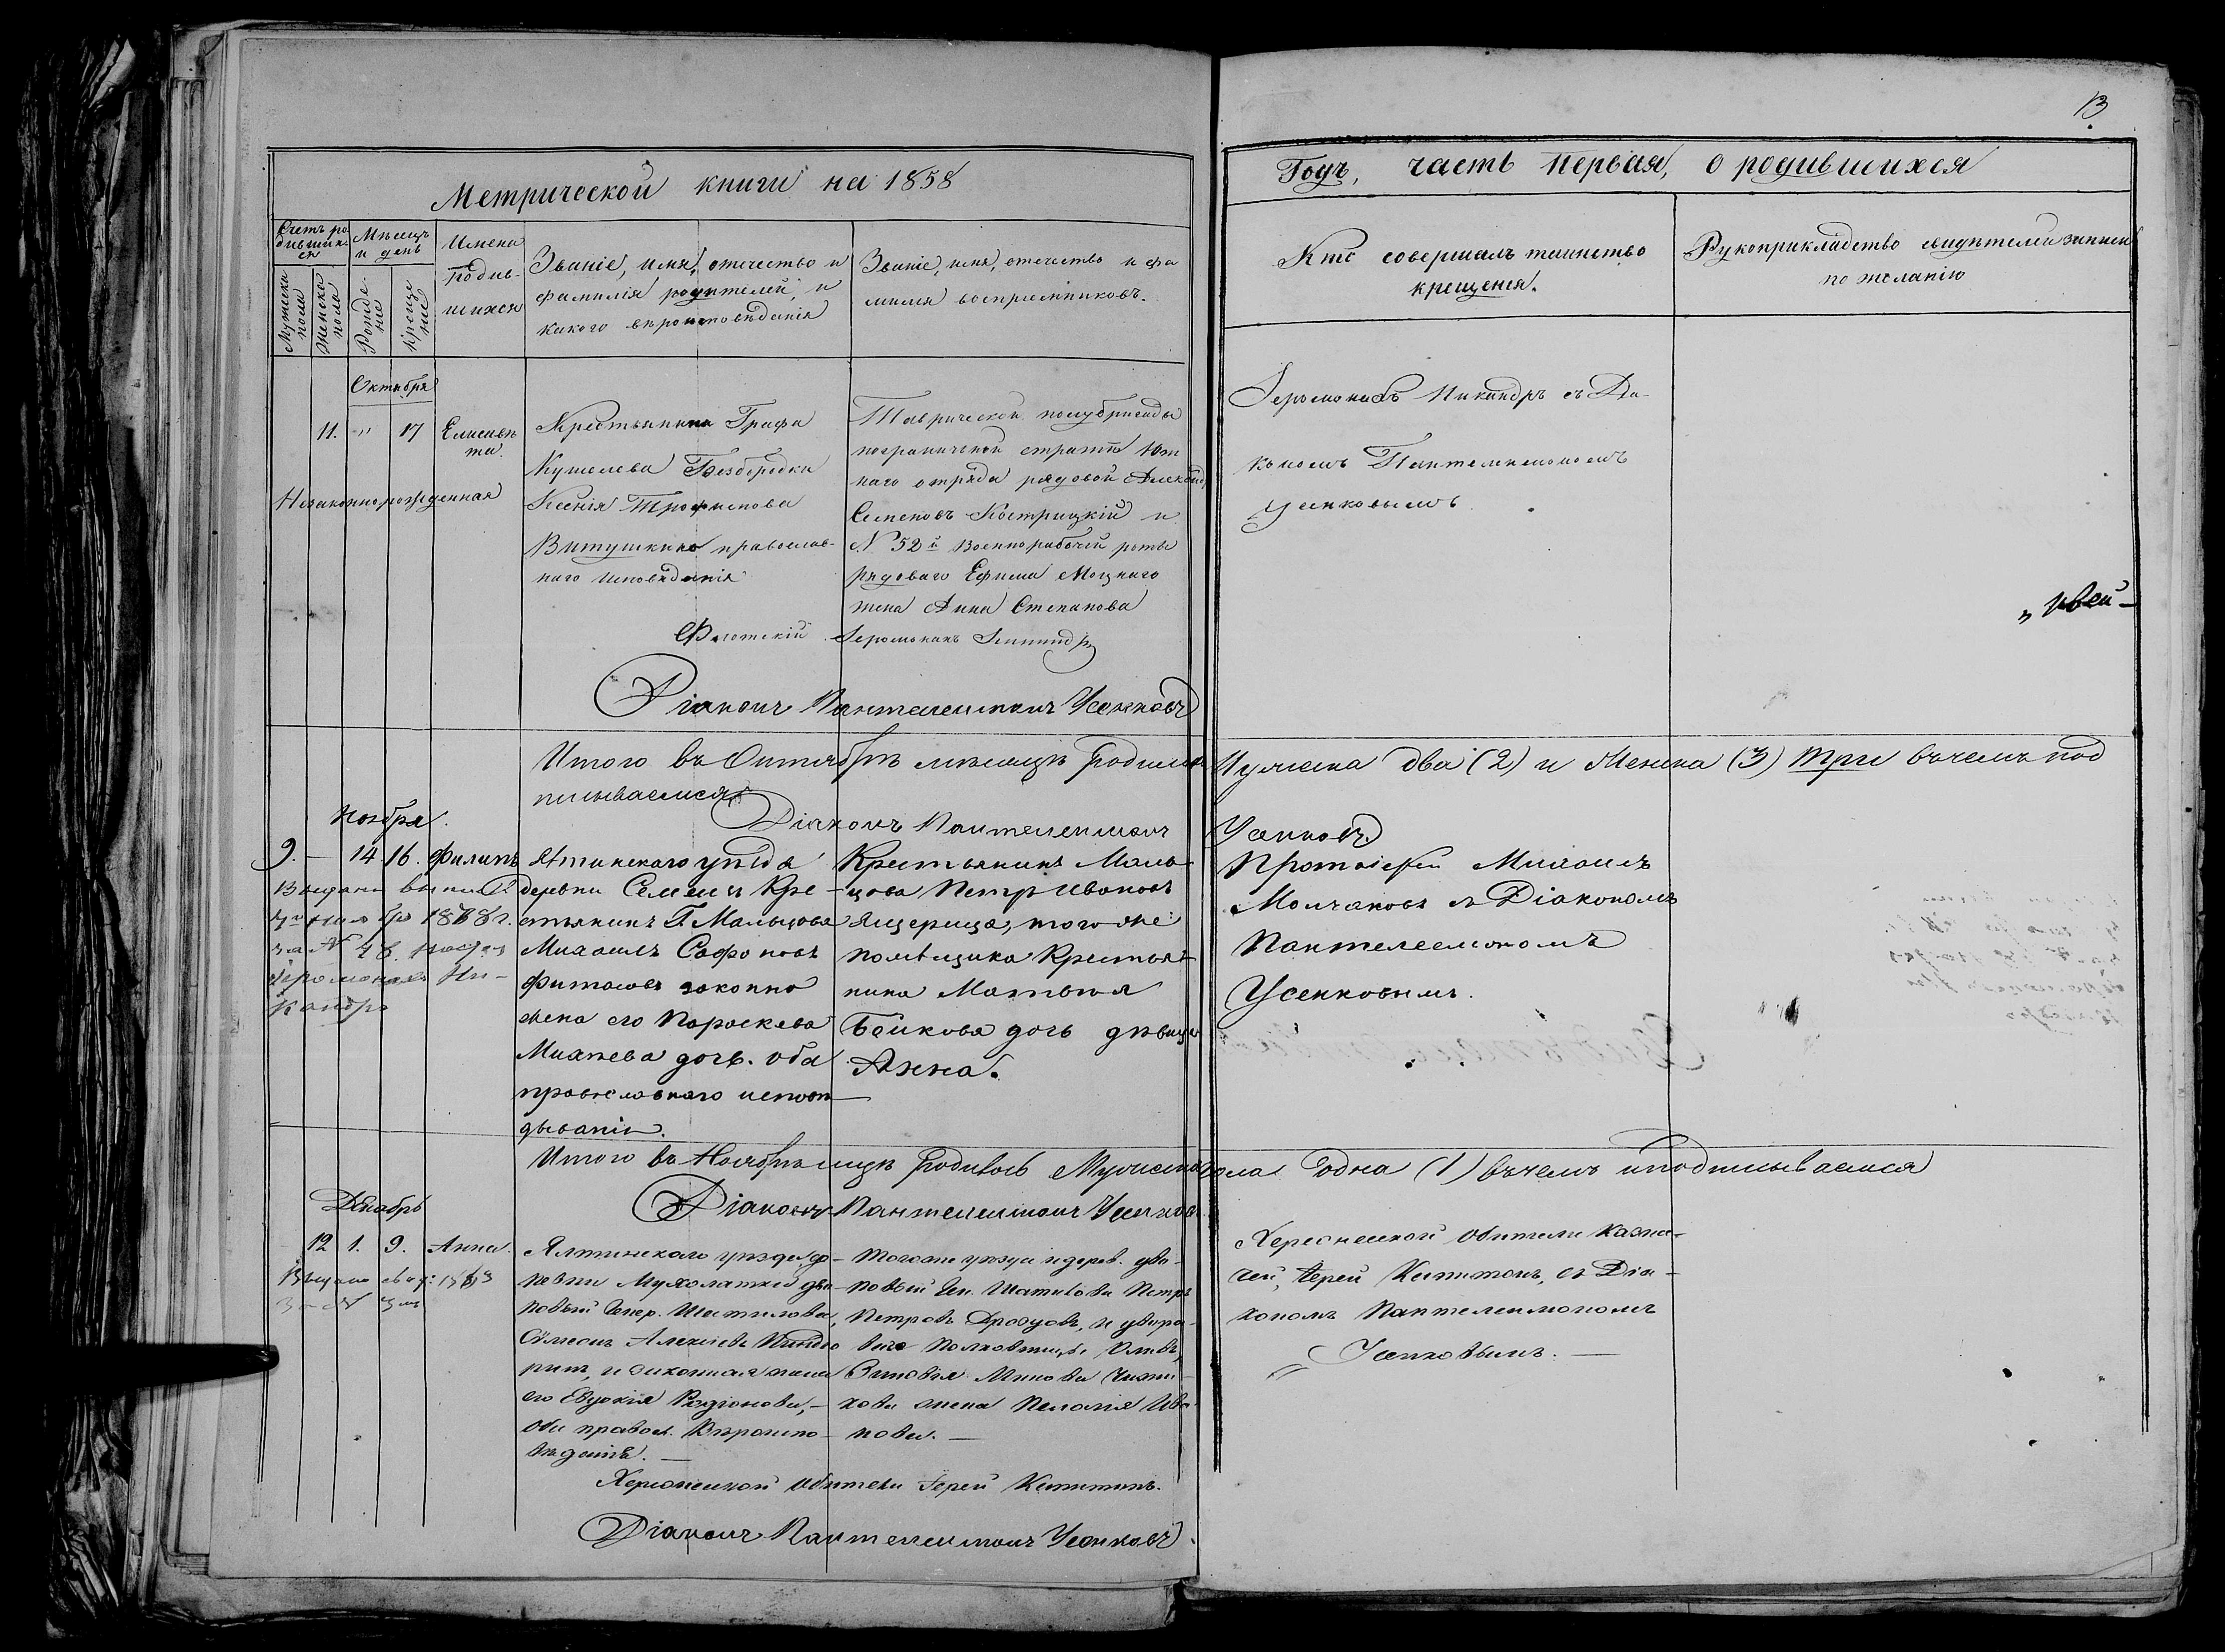 13
Метрической книги на 1858
Годъ, часть первая, о родившихся
Счетъ ро
дивших
ся
Мѣсяцъ
и день
Имена
родив-
шихся
Мужска
пола
Женска
пола
Рожде-
ніе
Креще
ніе
Званіе, имя, отечество и
фамилія родителей, и
какого вѣроисповѣданія
Званіе, имя, отечество и фа
милія воспріемниковъ.
Кто совершалъ таинство
крещенія.
Рукоприкладство свидѣтелей записи
по желанію
Октября
11. " 17 Елисаве
та.
Незаконнорожденная
Крестьянина Графа
Кушелева Безбородки
Ксенія Трофимова
Витушкина православ-
наго исповѣданія
Таврической полубригады
пограничной стражи
наго отряда рядовой Александ
Семеновъ Кострицкій и
№ 52й Военнорабочей роты
рядоваго Ефима Моцнаго
жена Анна Степанова
Іеромонахъ Никандръ съ Діа-
кономъ Пантелеимономъ
Усенковымъ
Флотскій Іеромонахъ
Діаконъ Пантелеимонъ Усенковъ
Итого въ Октябрѣ мѣсяцѣ родилось Мужеска два (2) и Женска (3) три въ чемъ под
писываемся
Діаконъ Пантелеимонъ Усенковъ
Ноября.
9. — 14. 16. Филипъ
Выдана выпись
1868 г.
за № 48.
Іеромонахъ Ни-
кандръ
Ялтинскаго уѣзда
деревни Семеиз Кре-
стьянинъ Г. Мальцова
Михаилъ Сафоновъ
Фитасовъ законно
жена его Пораскева
Михѣева дочь. оба
православнаго исповѣ
дыванія.
Крестьянинъ Маль-
цова Петръ Ивановъ
Ящерица, того же
помѣщика Крестья-
нина Матвѣя
Бойкова дочь дѣвица
Анна.
Протоіерей Михаилъ
Молчановъ съ Діакономъ
Пантелеемономъ
Усенковымъ.
Итого въ Ноябрѣ мѣсяцѣ родилось Мужеска пола одна (1) въ чемъ и подписываемся
Діаконъ Пантелеимонъ Усенковъ
Декабрь
12 1. 9. Анна.
Выдано
Ялтинскаго уѣзда, де-
ревни Мухалатки дво-
ровый Генер. Шатилова,
Симеонъ Алексѣевъ
и законная жена
его Евдокія Родіонова, —
оба правосл. Вѣроиспо-
вѣданія. —
Тогоже уѣзда и дерев. дво-
ровый Ген. Шатилова Петръ
Петровъ Дроздовъ, и дворо-
Зиновія Минова Чижи-
кова жена Пелагія Ива-
нова. —
Херсонеской Обители Казна-
чей, Іерей Капитонъ, съ Діа-
кономъ Пантелеимономъ
Усенковымъ. —
Херсонеской Обители Іерей Капитонъ.
Діаконъ Пантелеимонъ Усенковъ